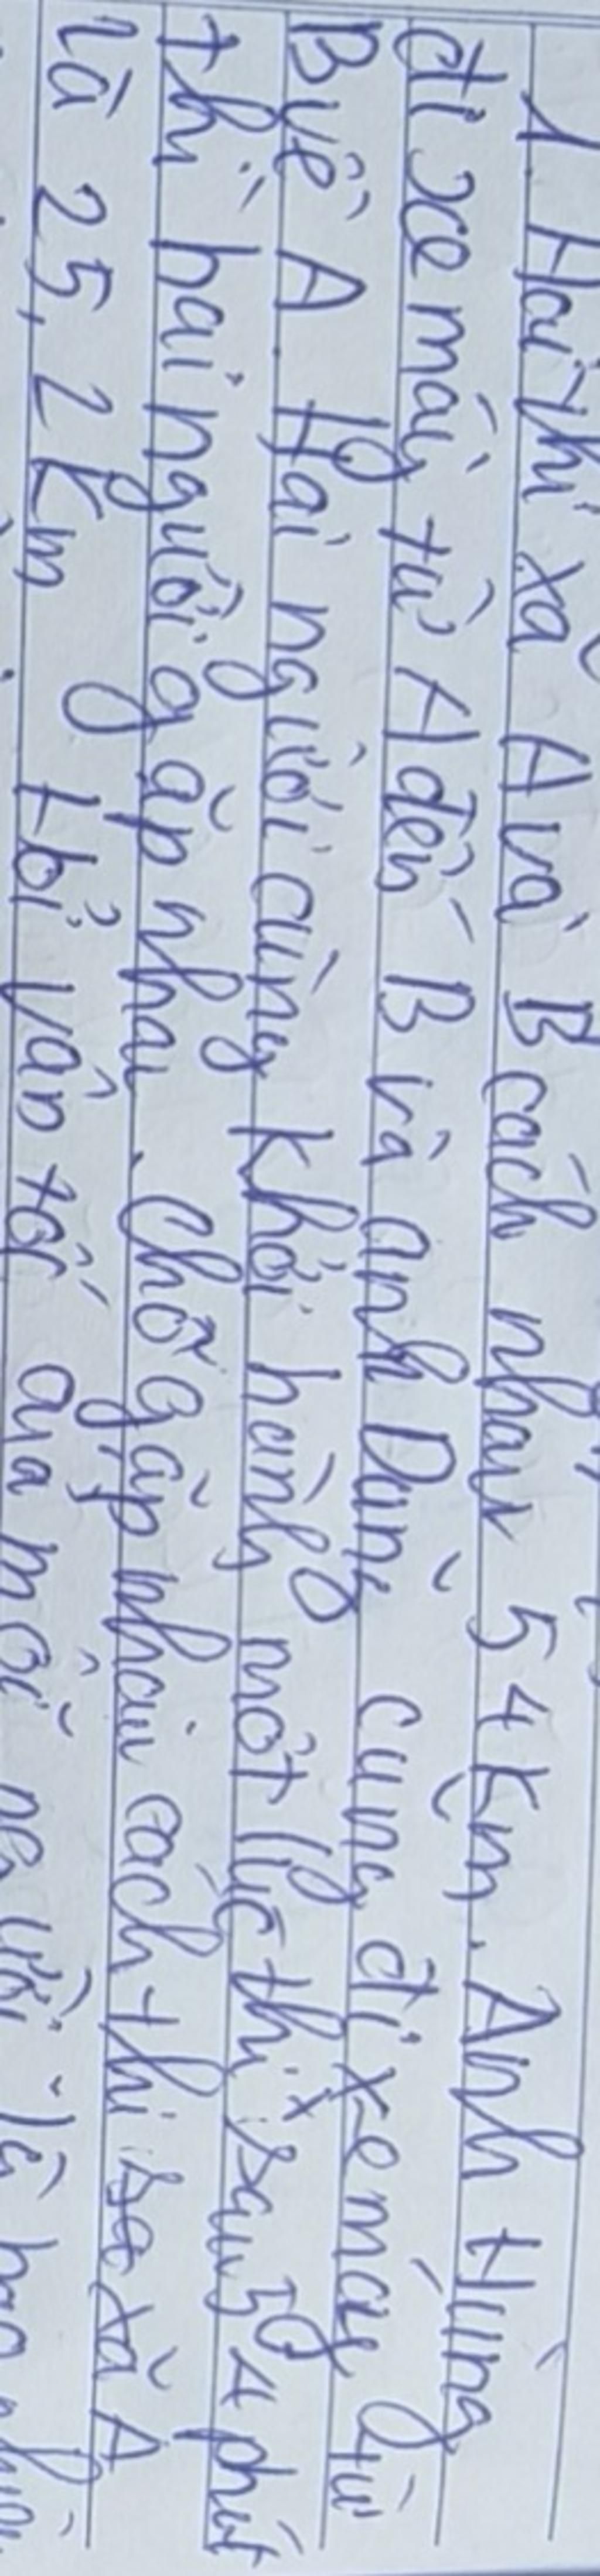 1. Hai thị xã A và B cách nhau 54 km. Anh Hùng
đi xe máy từ A đến B và anh Dũng cũng đi xe máy từ
B về A. Hai người cùng khởi hành một lúc thì sau 54 phút
thì hai người gặp nhau. Chỗ gặp nhau cách thị xã A
là 25,2 km Hỏi vận tốc của mỗi người là bao nhiêu